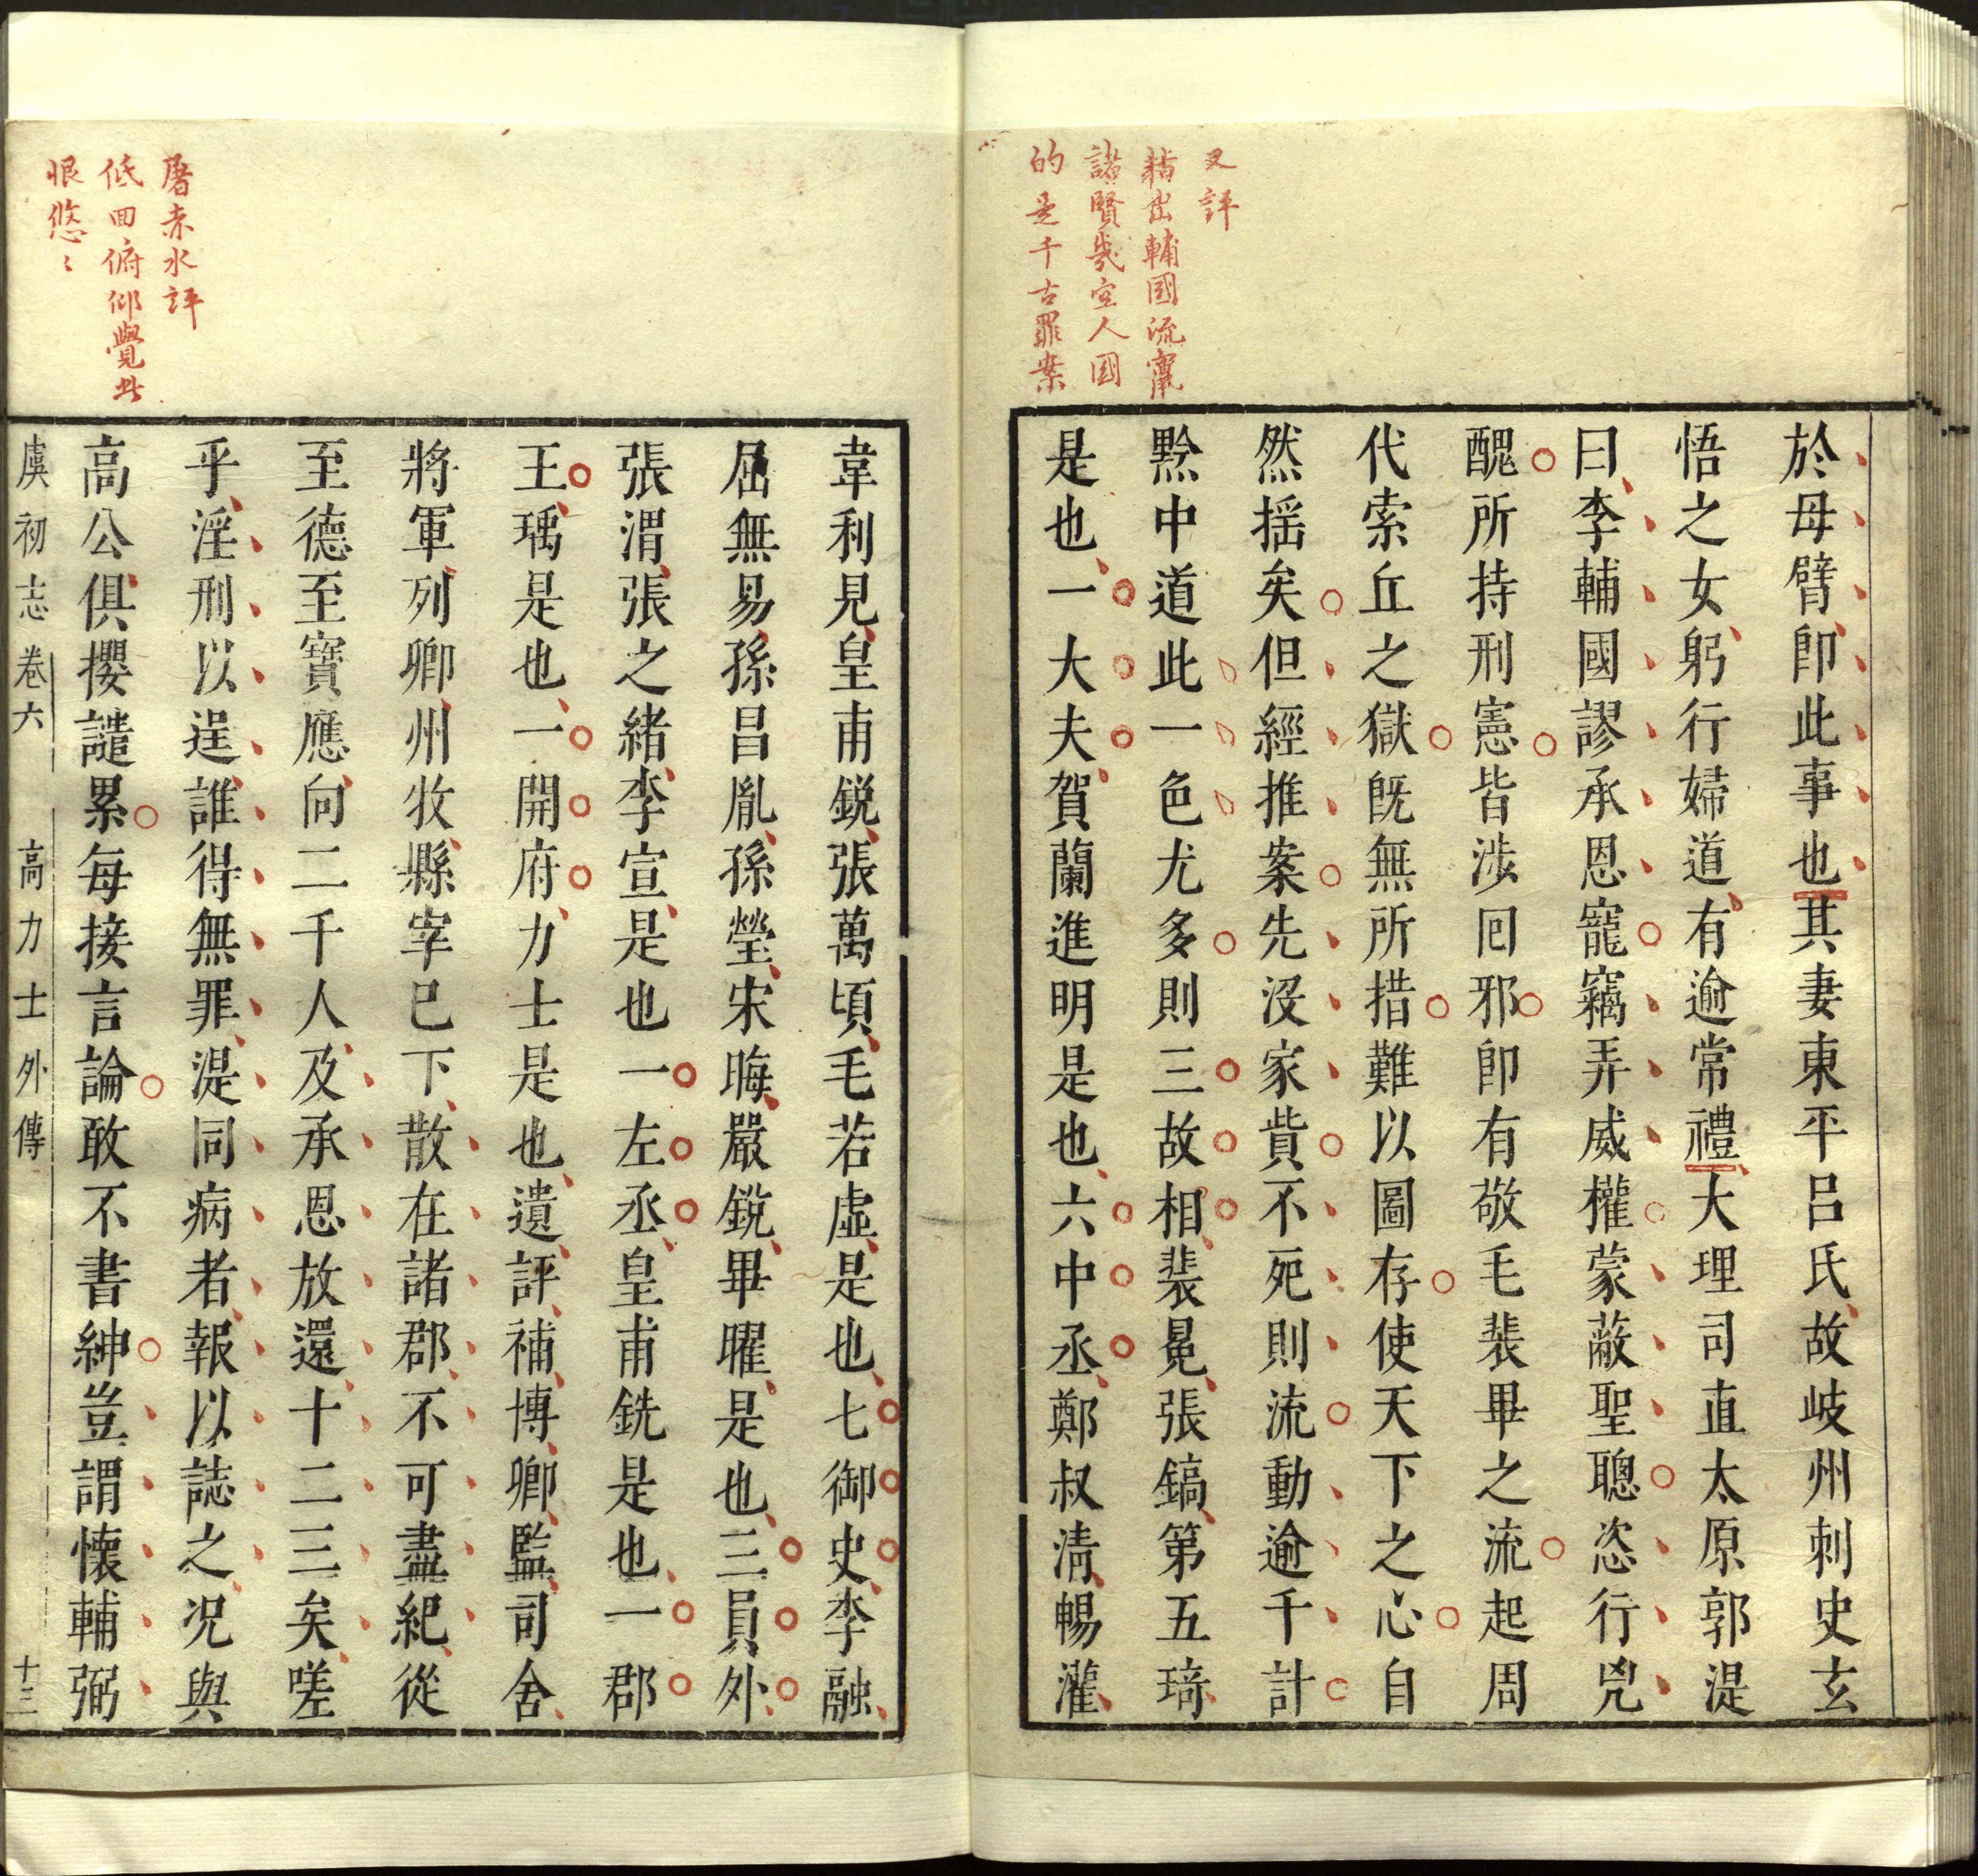 又評
黏出輔國流竄
諸賢幾空人國
的是千古罪案
於母臂卽此事也其妻東平呂氏故岐州刺史玄
悟之女躬行婦道有逾常禮大理司直太原郭湜
曰李輔國謬承恩寵竊弄威權蒙蔽聖聰恣行兇
醜所持刑憲皆涉回邪卽有敬毛裴畢之流起周
代索丘之獄旣無所措難以圖存使天下之心自
然揺矣但經推案先沒家貲不死則流動逾千計
黔中道此一色尤多則三故相裴冕張鎬第五琦
是也一大夫賀蘭進明是也六中丞鄭叔清暢灌
屠赤水評
低回俯仰覺此
恨悠〻
韋利見皇甫銳張萬頃毛若虛是也七御史李融
屈無易孫昌胤孫瑩宋晦嚴銳畢曜是也三員外
張渭張之緒李宣是也一左丞皇甫銑是也一郡
王瑀是也一開府力士是也遺評補博卿監司舍
將軍列卿州牧縣宰巳下散在諸郡不可盡紀從
至德至寶應向二千人及承恩放還十二三矣嗟
乎淫刑以逞誰得無罪湜同病者報以誌之况與
高公俱攖譴累每接言論敢不書紳豈謂懷輔弼
虞初志 卷六 高力士外傳 十三